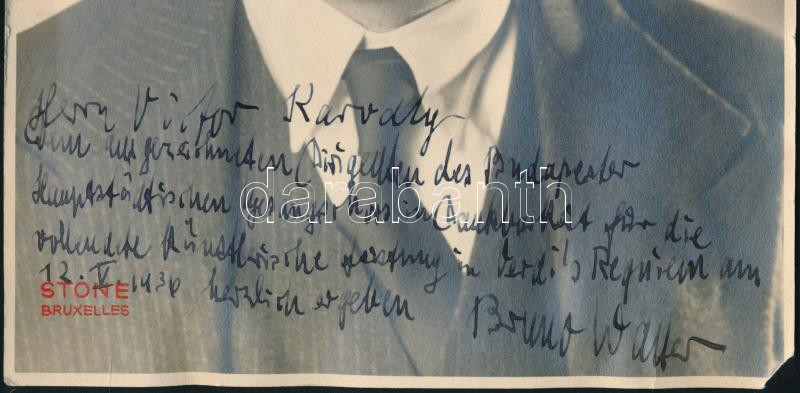 Herrn Victor Karvaly
dem ausgezeichneten Dirigenten des Budapester
Hauptstädtischen Gesangschors in Dankbarkeit für die
vollendete künstlerische Leistung in Verdi's Requiem am
12. V. 1936 herzlich ergeben
Bruno Walter
STONE
BRUXELLES
darabanth